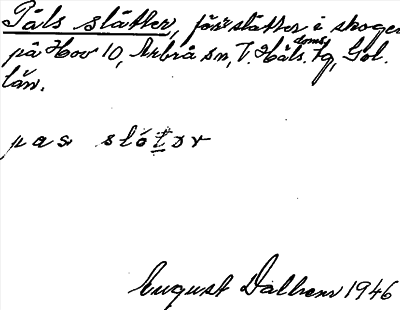 Påls slåtter, förr slåtter i skogen
på Hov 10, Arbrå sn, V. Häls.doms tg, Gol.
län.
pas slótər
August Dalbom 1946